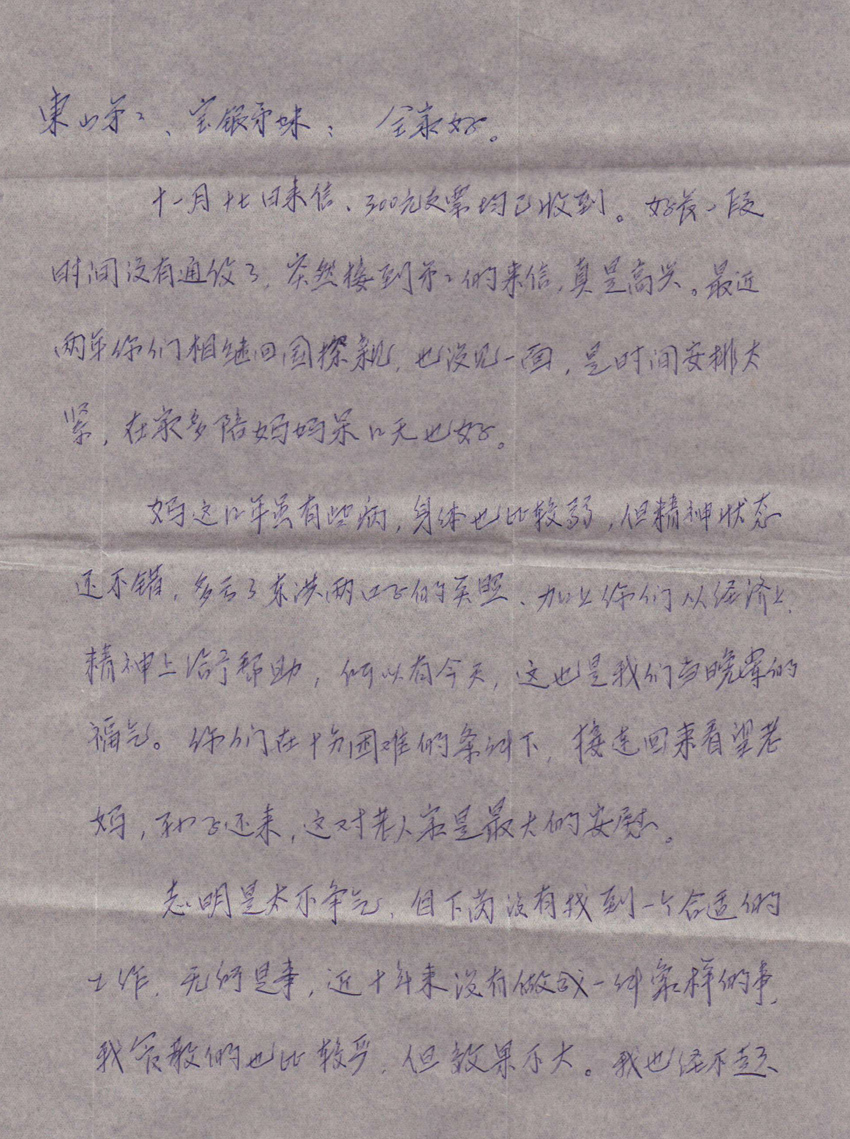 東山弟弟、宝银弟妹：全家好。
十一月廿七日来信、300元支票均已收到。好长一段
时间没有通信了，突然接到弟弟的来信，真是高兴。最近
两年你们相继回国探亲，也没见一面，是时间安排太
紧，在家多陪妈妈呆几天也好。
妈这几年虽有些病，身体也比较弱，但精神状态
还不错，多亏了东洪两口子的关照、加上你们从经济上、
精神上给予帮助，何以有今天，这也是我们当晚辈的
福气。你们在十分困难的条件下，接连回来看望老
妈，孙子还来，这对老人家是最大的安慰。
志明是太不争气，但下岗没有找到一个合适的
工作，无所是事，近十年来没有做成一件象样的事，
我管教的也比较严，但效果不大。我也经不起